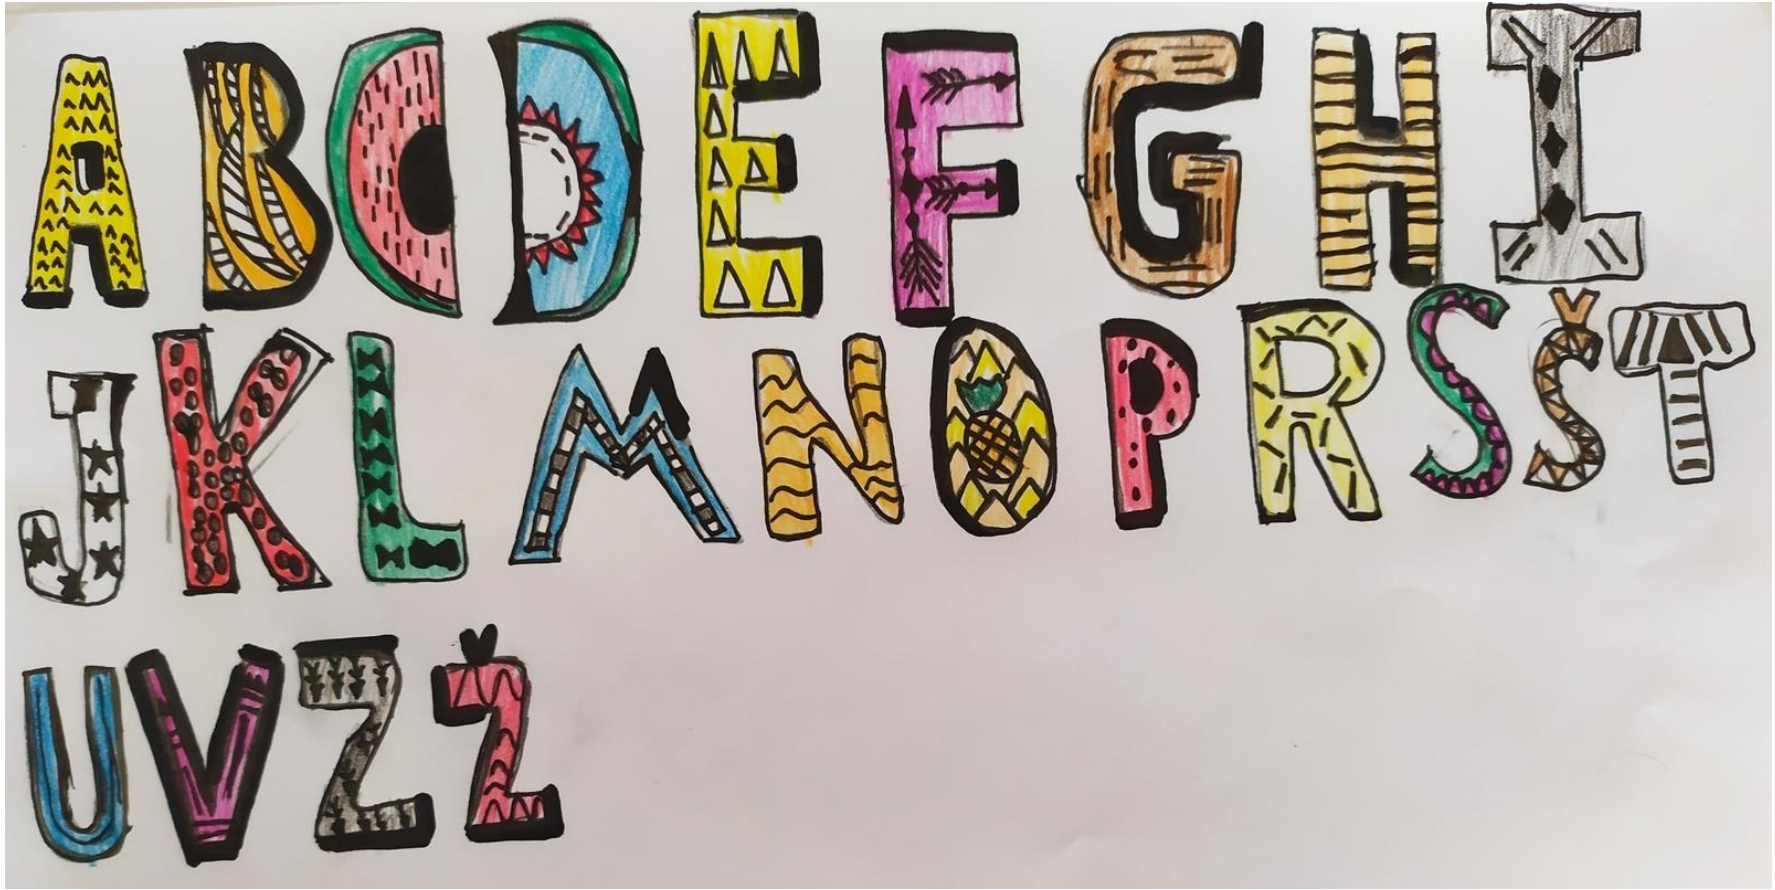 A B C D E F G H I
J K L M N O P R S Š T
U V Z Ž